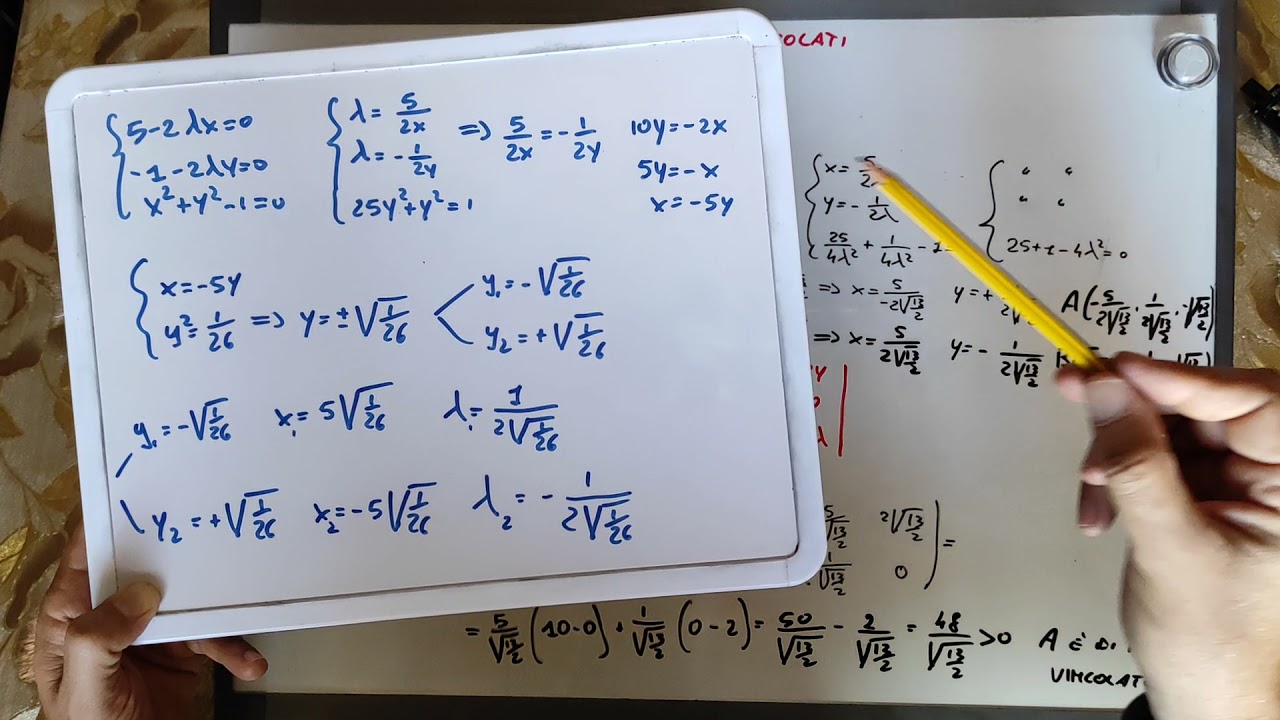 { 5-2λx=0
-1-2λy=0
x²+y²-1=0
{ λ= 5/2x
λ=-1/2y
25y²+y²=1
=> 5/2x = -1/2y
10y=-2x
5y=-x
x=-5y
{ x=-5y
y²=1/26 => y=±√(1/26)
y₁=-√(1/26)
y₂=+√(1/26)
y₁=-√(1/26) x₁=5√(1/26) λ₁=1/(2√(1/26))
y₂=+√(1/26) x₂=-5√(1/26) λ₂=-1/(2√(1/26))
OLATI
{ x=5/2
y=-1/2λ
25/4λ²+1/4λ²-1
{ " "
" "
25+1-4λ²=0
=> x=5/(-2√(13/2)) y=+ A(-5/(2√(13/2)), 1/(2√(13/2)), -√(13/2))
=> x=5/(2√(13/2)) y=-1/(2√(13/2))
2√(13/2)
0 ) =
= 5/√(13/2) (10-0) + 1/√(13/2) (0-2) = 50/√(13/2) - 2/√(13/2) = 48/√(13/2) >0 A È DI
VINCOLAT